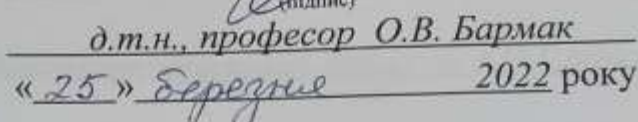 (підпис)
д.т.н., професор О.В. Бармак
« 25 » березня 2022 року